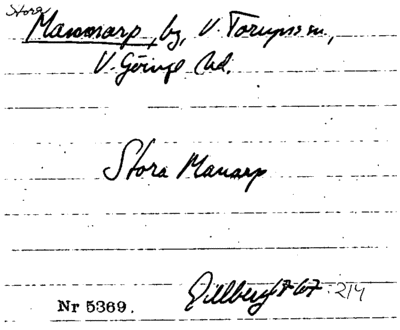 Stora
Mannarp, by, V. Torups sn,
V. Göinge hd.
Stora Manarp
Gillberg 1767: 214
Nr 5369.